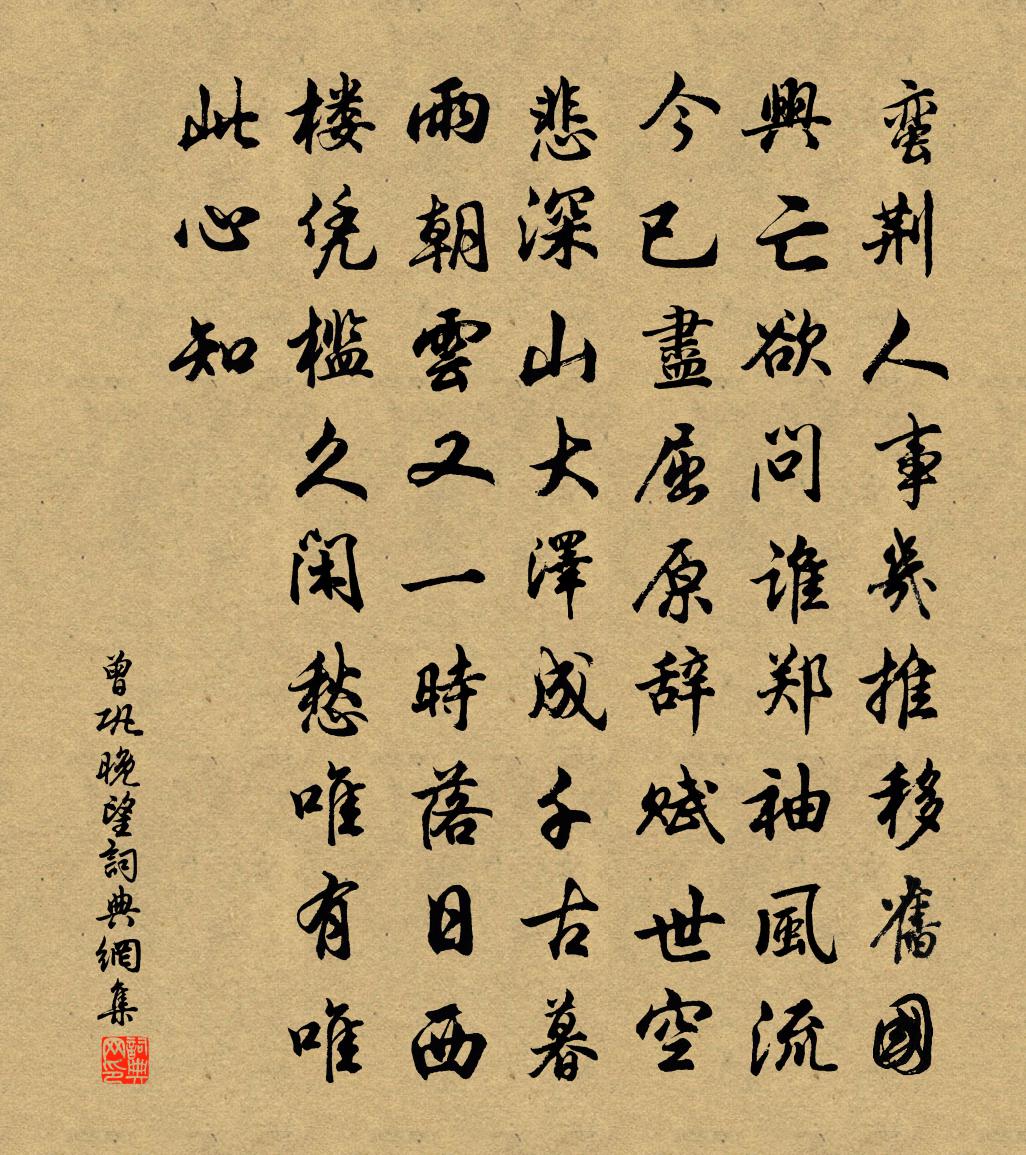 蛮荆人事幾推移舊國
興亡欲问谁郑袖風流
今已盡屈原辞赋世空
悲深山大澤成千古暮
雨朝雲又一時落日西
楼凭槛久闲愁唯有唯
此心知
曾巩晚望詞典網集
詞典网印